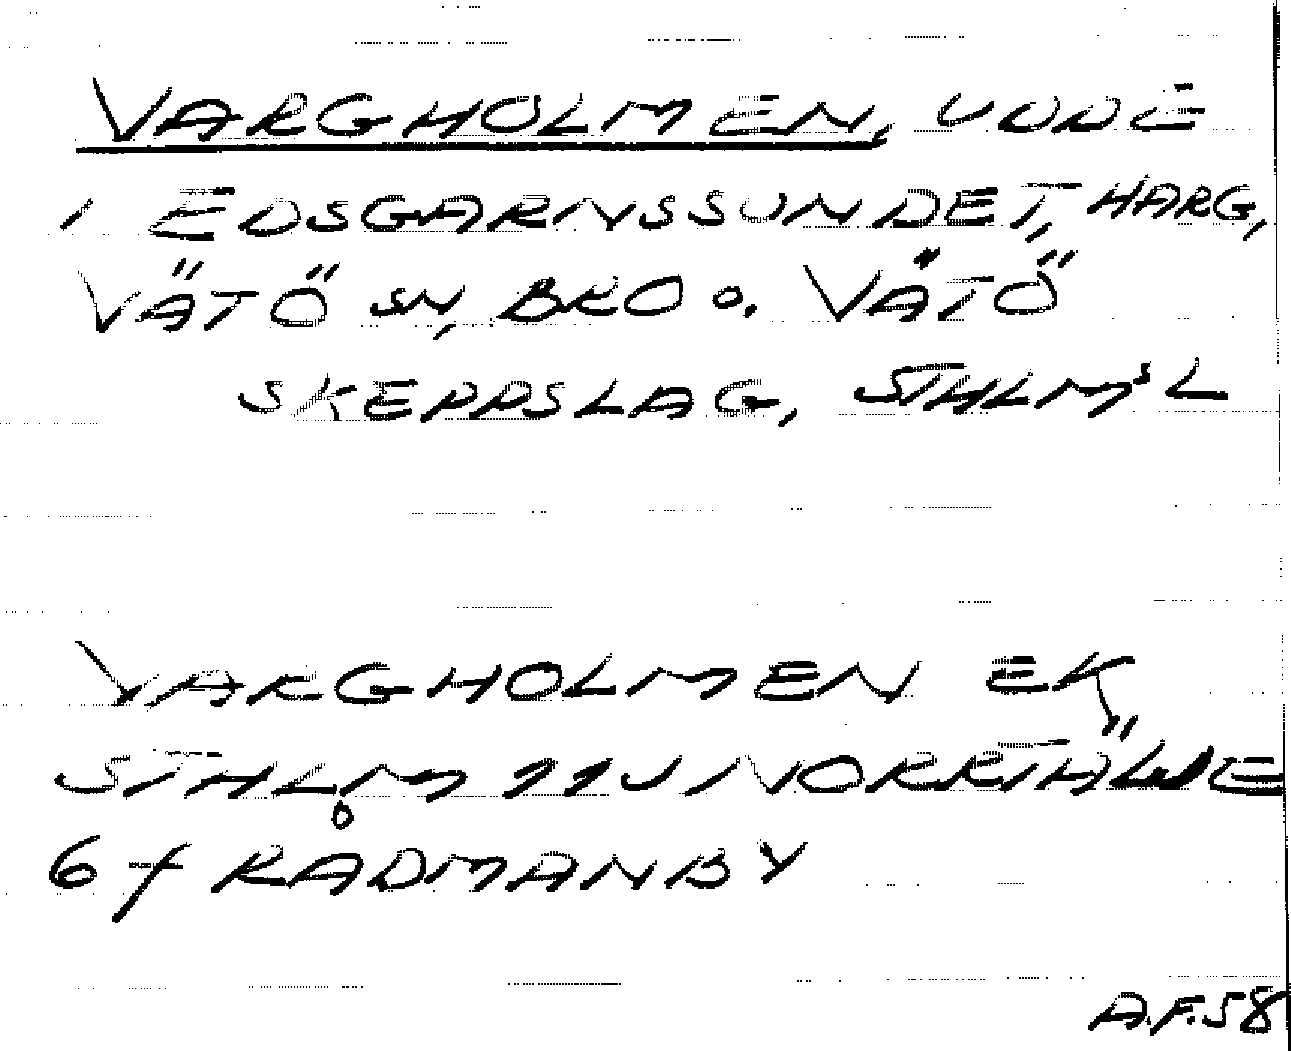 VARGHOLMEN, UDDE
I EDSGARNSSUNDET, HARG,
VÄTÖ SN, BRO O. VÄTÖ
SKEPPSLAG, STHLMSL
VARGHOLMEN EK
STHLM 11J NORRTÄLJE
6 f RÅDMANBY
A.F.58